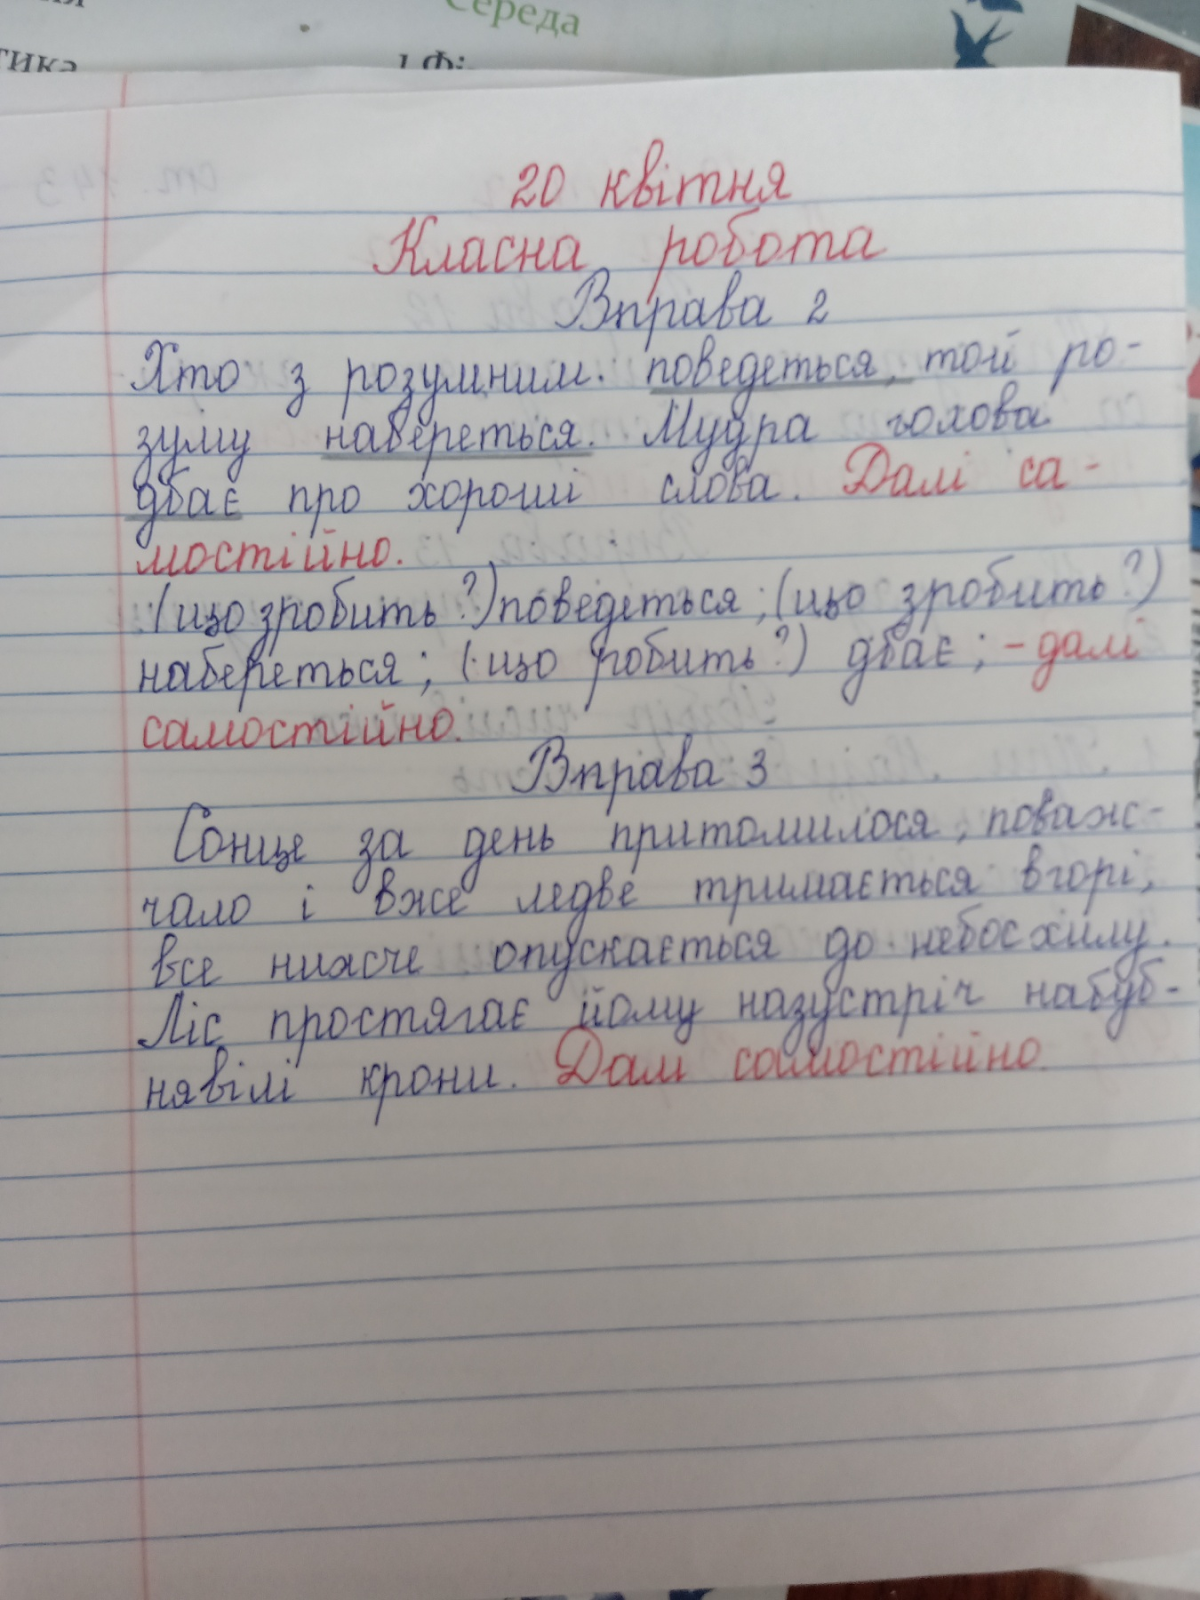 Середа
тика
20 квітня
Класна робота
Вправа 2
Хто з розумним поведеться, той ро-
зуму набереться. Мудра голова
дбає про хороші слова. Далі са-
мостійно.
(що зробить?) поведеться; (що зробить?)
набереться; (що робить?) дбає; - далі
самостійно.
Вправа 3
Сонце за день притомилося, поваж-
чало і вже ледве тримається вгорі,
все нижче опускається до небосхилу.
Ліс простягає йому назустріч набуб-
нявілі крони. Далі самостійно.